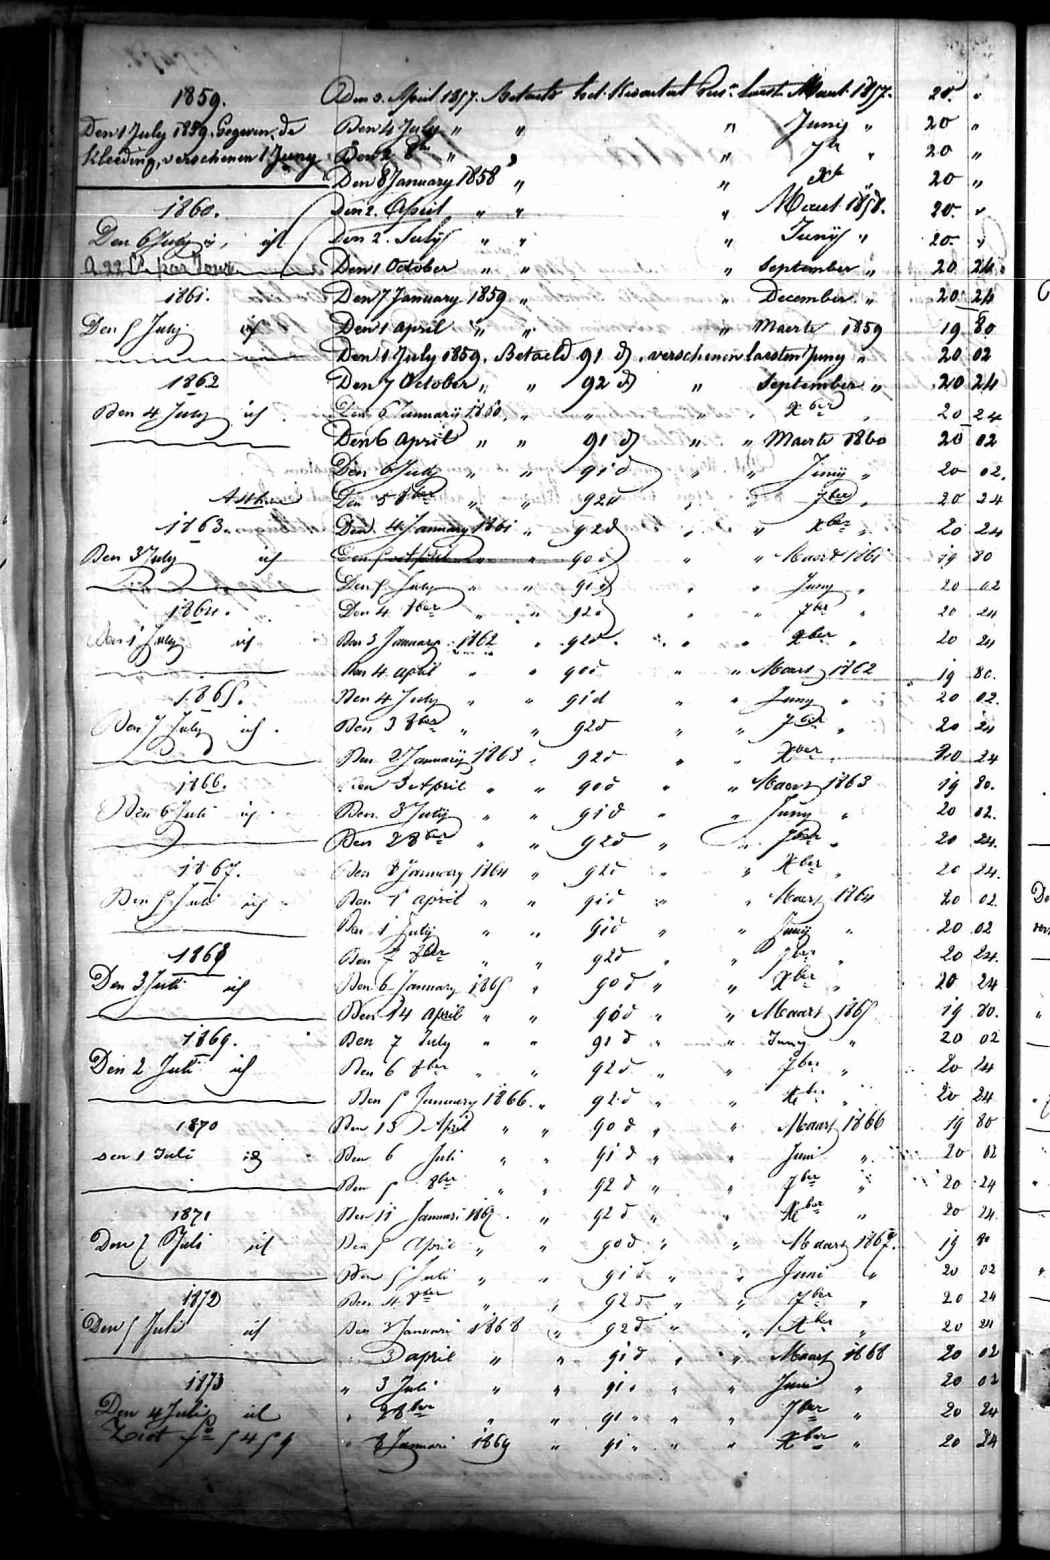 1859.
Den 1 July 1859. Gegeven de
Kleeding, verschenen 1 Juny
1860.
Den 6 July
a 22 Cs par Jour
1861.
Den 5 July
1862
Den 4 July
1863.
Den 3 July
1864.
July
1865.
Den 7 July
1866.
Den 6 Juli
1867.
Den 5 Juli
1868
Den 3 Juli
1869.
Den 2 Juli
1870
den 1 Juli
1871
Den 7 Juli
1872
Den 5 Juli
1873
Den 4 Juli
5459
Den 3. April 1857. Betaelt het Kwartael Maart 1857. 20. "
Den 4 July " " " Juny " 20 "
Den 2 8br " " " 7br " 20 "
Den 8 January 1858 " " Xbr 20 "
Den 2. April " " " Maart 1858. 20. "
Den 2. July " " " Junij " 20. "
Den 1 October " " " September " 20 24
Den 7 January 1859 " " December " 20 24
Den 1 April " " " Maerte 1859 19 80
Den 1 July 1859. Betaeld 91 d. verschenen laesten Juny " 20 02
Den 7 October " " 92 d " September " 20 24
Den 6 Januarij 1860 " " " " Xber 20 24
Den 6 April " " 91 d " " Maerte 1860 20 02
Den 6 July " " 91 d " " Junij " 20 02.
Den 5 8ber " " 92 d " " 7ber " 20 24
Den 4 January 1861 " 92 d " " Xber " 20 24
Den 5 April " " 90 d " " Maert 1861 19 80
Den 5 July " " 91 d " " Juny " 20 02
Den 4 8ber " " 92 d " " 7ber " 20 24
Den 3 January 1862 " 92 d " " Xber " 20 24
Den 4 april " " 90 d " " Maart 1862 19 80.
Den 4 July " " 91 d " " Juny " 20 02.
Den 3 8ber " " 92 d " " 7ber " 20 24
Den 2 Januarij 1863 " 92 d " " Xber " 20 24
Den 3 April " " 90 d " " Maert 1863 19 80.
Den 3 July " " 91 d " " Juny " 20 02.
Den 2 8ber " " 92 d " " 7ber " 20 24.
Den 8 January 1864 " 92 d " " Xber " 20 24.
Den 1 April " " 91 d " " Maert 1864 20 02
Den 1 July " " 91 d " " Junij " 20 02
Den 7 8ber " " 92 d " " 7ber " 20 24.
Den 6 January 1865 " 90 d " " Xber " 20 24
Den 14 April " " 90 d " " Maart 1865 19 80.
Den 7 July " " 91 d " " Juny " 20 02
Den 6 8ber " " 92 d " " 7ber " 20 24
Den 5 January 1866 " 92 d " " Xber " 20 24
Den 13 April " " 90 d " " Maart 1866 19 80
Den 6 Juli " " 91 d " " Juni " 20 02
Den 5 8ber " " 92 d " " 7ber " 20 24
Den 11 Januari 1867 " 92 d " " Xber " 20 24
Den 5 April " " 90 d " " Maart 1867. 19 80
Den 5 Juli " " 91 d " " Juni " 20 02
Den 4 8ber " " 92 d " " 7ber " 20 24
Den 3 Januari 1868 " 92 d " " Xber " 20 24
3 april " " 91 d " " Maart 1868 20 02
" 3 Juli " " 91 " " " Juni " 20 02
" 2 8ber " " 91 " " " 7ber " 20 24
" 8 Januari 1869 " 91 " " " Xber " 20 24